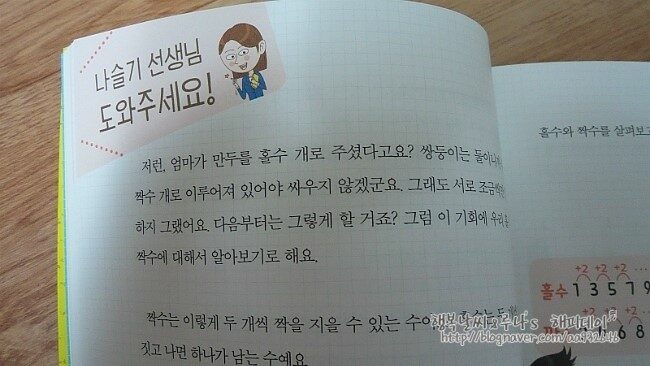 나슬기 선생님
도와주세요!
저런, 엄마가 만두를 홀수 개로 주셨다고요? 쌍둥이는
짝수 개로 이루어져 있어야 싸우지 않겠군요. 그래도 서로
하지 그랬어요. 다음부터는 그렇게 할 거죠? 그럼 이 기회에
짝수에 대해서 알아보기로 해요.
짝수는 이렇게 두 개씩 짝을 지을 수 있는
짓고 나면 하나가 남는 수예요
홀수와 짝수를 살펴보
+2 +2 +2 ...
홀수 1 3 5 7 9
6 8
's 해피데이